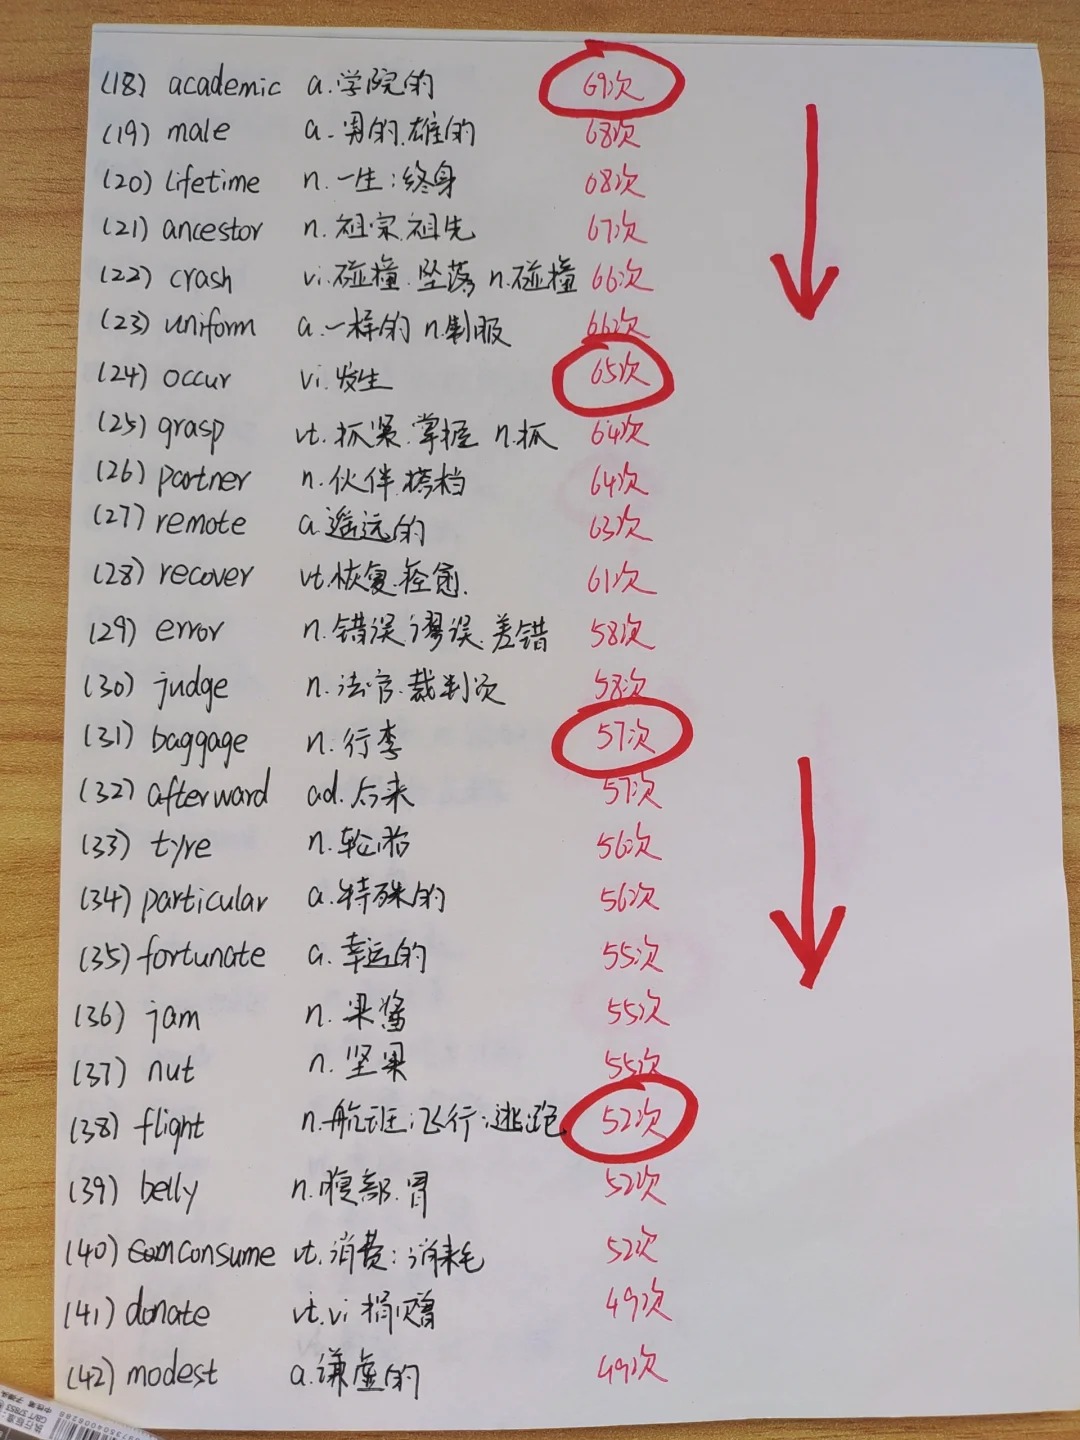 (18) academic a.学院的 69次
(19) male a.男的.雄的 68次
(20) lifetime n.一生;终身 68次
(21) ancestor n.祖宗.祖先 67次
(22) crash vi.碰撞.坠落 n.碰撞 66次
(23) uniform a.一样的 n.制服 66次
(24) occur vi.发生 65次
(25) grasp vt.抓紧.掌握 n.抓 64次
(26) partner n.伙伴.搭档 64次
(27) remote a.遥远的 63次
(28) recover vt.恢复.痊愈. 61次
(29) error n.错误.谬误.差错 58次
(30) judge n.法官.裁判员 58次
(31) baggage n.行李 57次
(32) afterward ad.后来 57次
(33) tyre n.轮胎 56次
(34) particular a.特殊的 56次
(35) fortunate a.幸运的 55次
(36) jam n.果酱 55次
(37) nut n.坚果 55次
(38) flight n.航班;飞行;逃跑 52次
(39) belly n.腹部.胃 52次
(40) consume vt.消费;消耗 52次
(41) donate vt.vi捐赠 49次
(42) modest a.谦虚的 49次